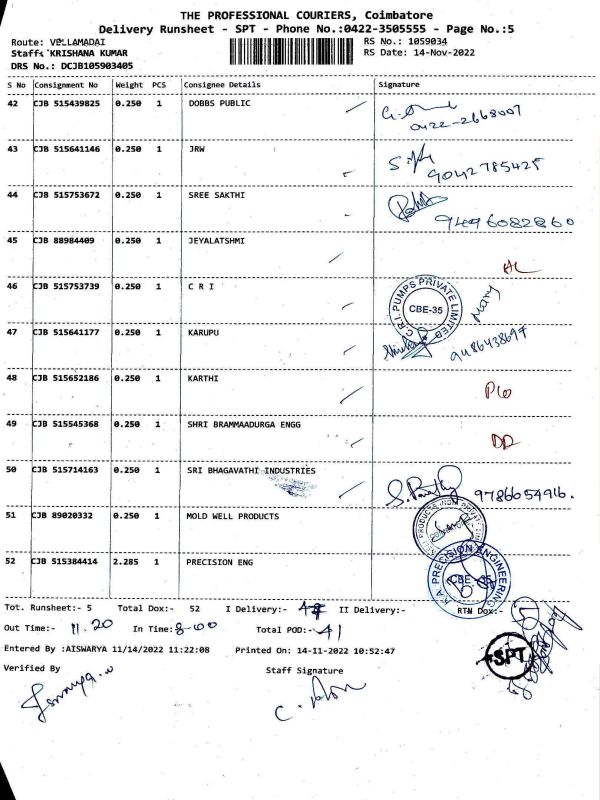 THE PROFESSIONAL COURIERS, Coimbatore
Delivery Runsheet - SPT - Phone No.:0422-3505555 - Page No.:5
Route: VELLAMADAI
RS No.: 1059034
Staff: KRISHANA KUMAR
RS Date: 14-Nov-2022
DRS No.: DCJB105903405
S No Consignment No Weight PCS Consignee Details Signature
42 CJB 515439825 0.250 1 DOBBS PUBLIC
0422-2668007
43 CJB 515641146 0.250 1 JRW
9042785425
44 CJB 515753672 0.250 1 SREE SAKTHI
9496082860
45 CJB 88984409 0.250 1 JEYALATSHMI
46 CJB 515753739 0.250 1 C R I
C.R.I. PUMPS PRIVATE LIMITED
CBE-35
47 CJB 515641177 0.250 1 KARUPU
9486438697
48 CJB 515652186 0.250 1 KARTHI
49 CJB 515545368 0.250 1 SHRI BRAMMAADURGA ENGG
DD
50 CJB 515714163 0.250 1 SRI BHAGAVATHI INDUSTRIES
9786654916.
51 CJB 89020332 0.250 1 MOLD WELL PRODUCTS
52 CJB 515384414 2.285 1 PRECISION ENG
K.A. PRECISION ENGINEERING
CBE-35
Tot. Runsheet:- 5 Total Dox:- 52 I Delivery:- II Delivery:- RTN Dox:-
Out Time:- 11.20 In Time:- 8-00 Total POD:- 41
Entered By :AISWARYA 11/14/2022 11:22:08 Printed On: 14-11-2022 10:52:47
SPT
Verified By Staff Signature